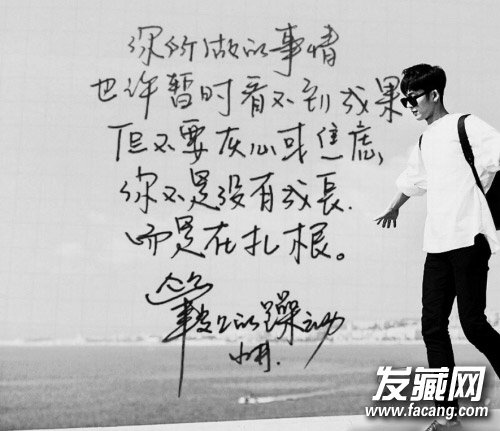 你所做的事情
也许暂时看不到成果
但不要灰心或焦虑,
你不是没有成長.
而是在扎根。
的躁动
发藏网
www.facang.com